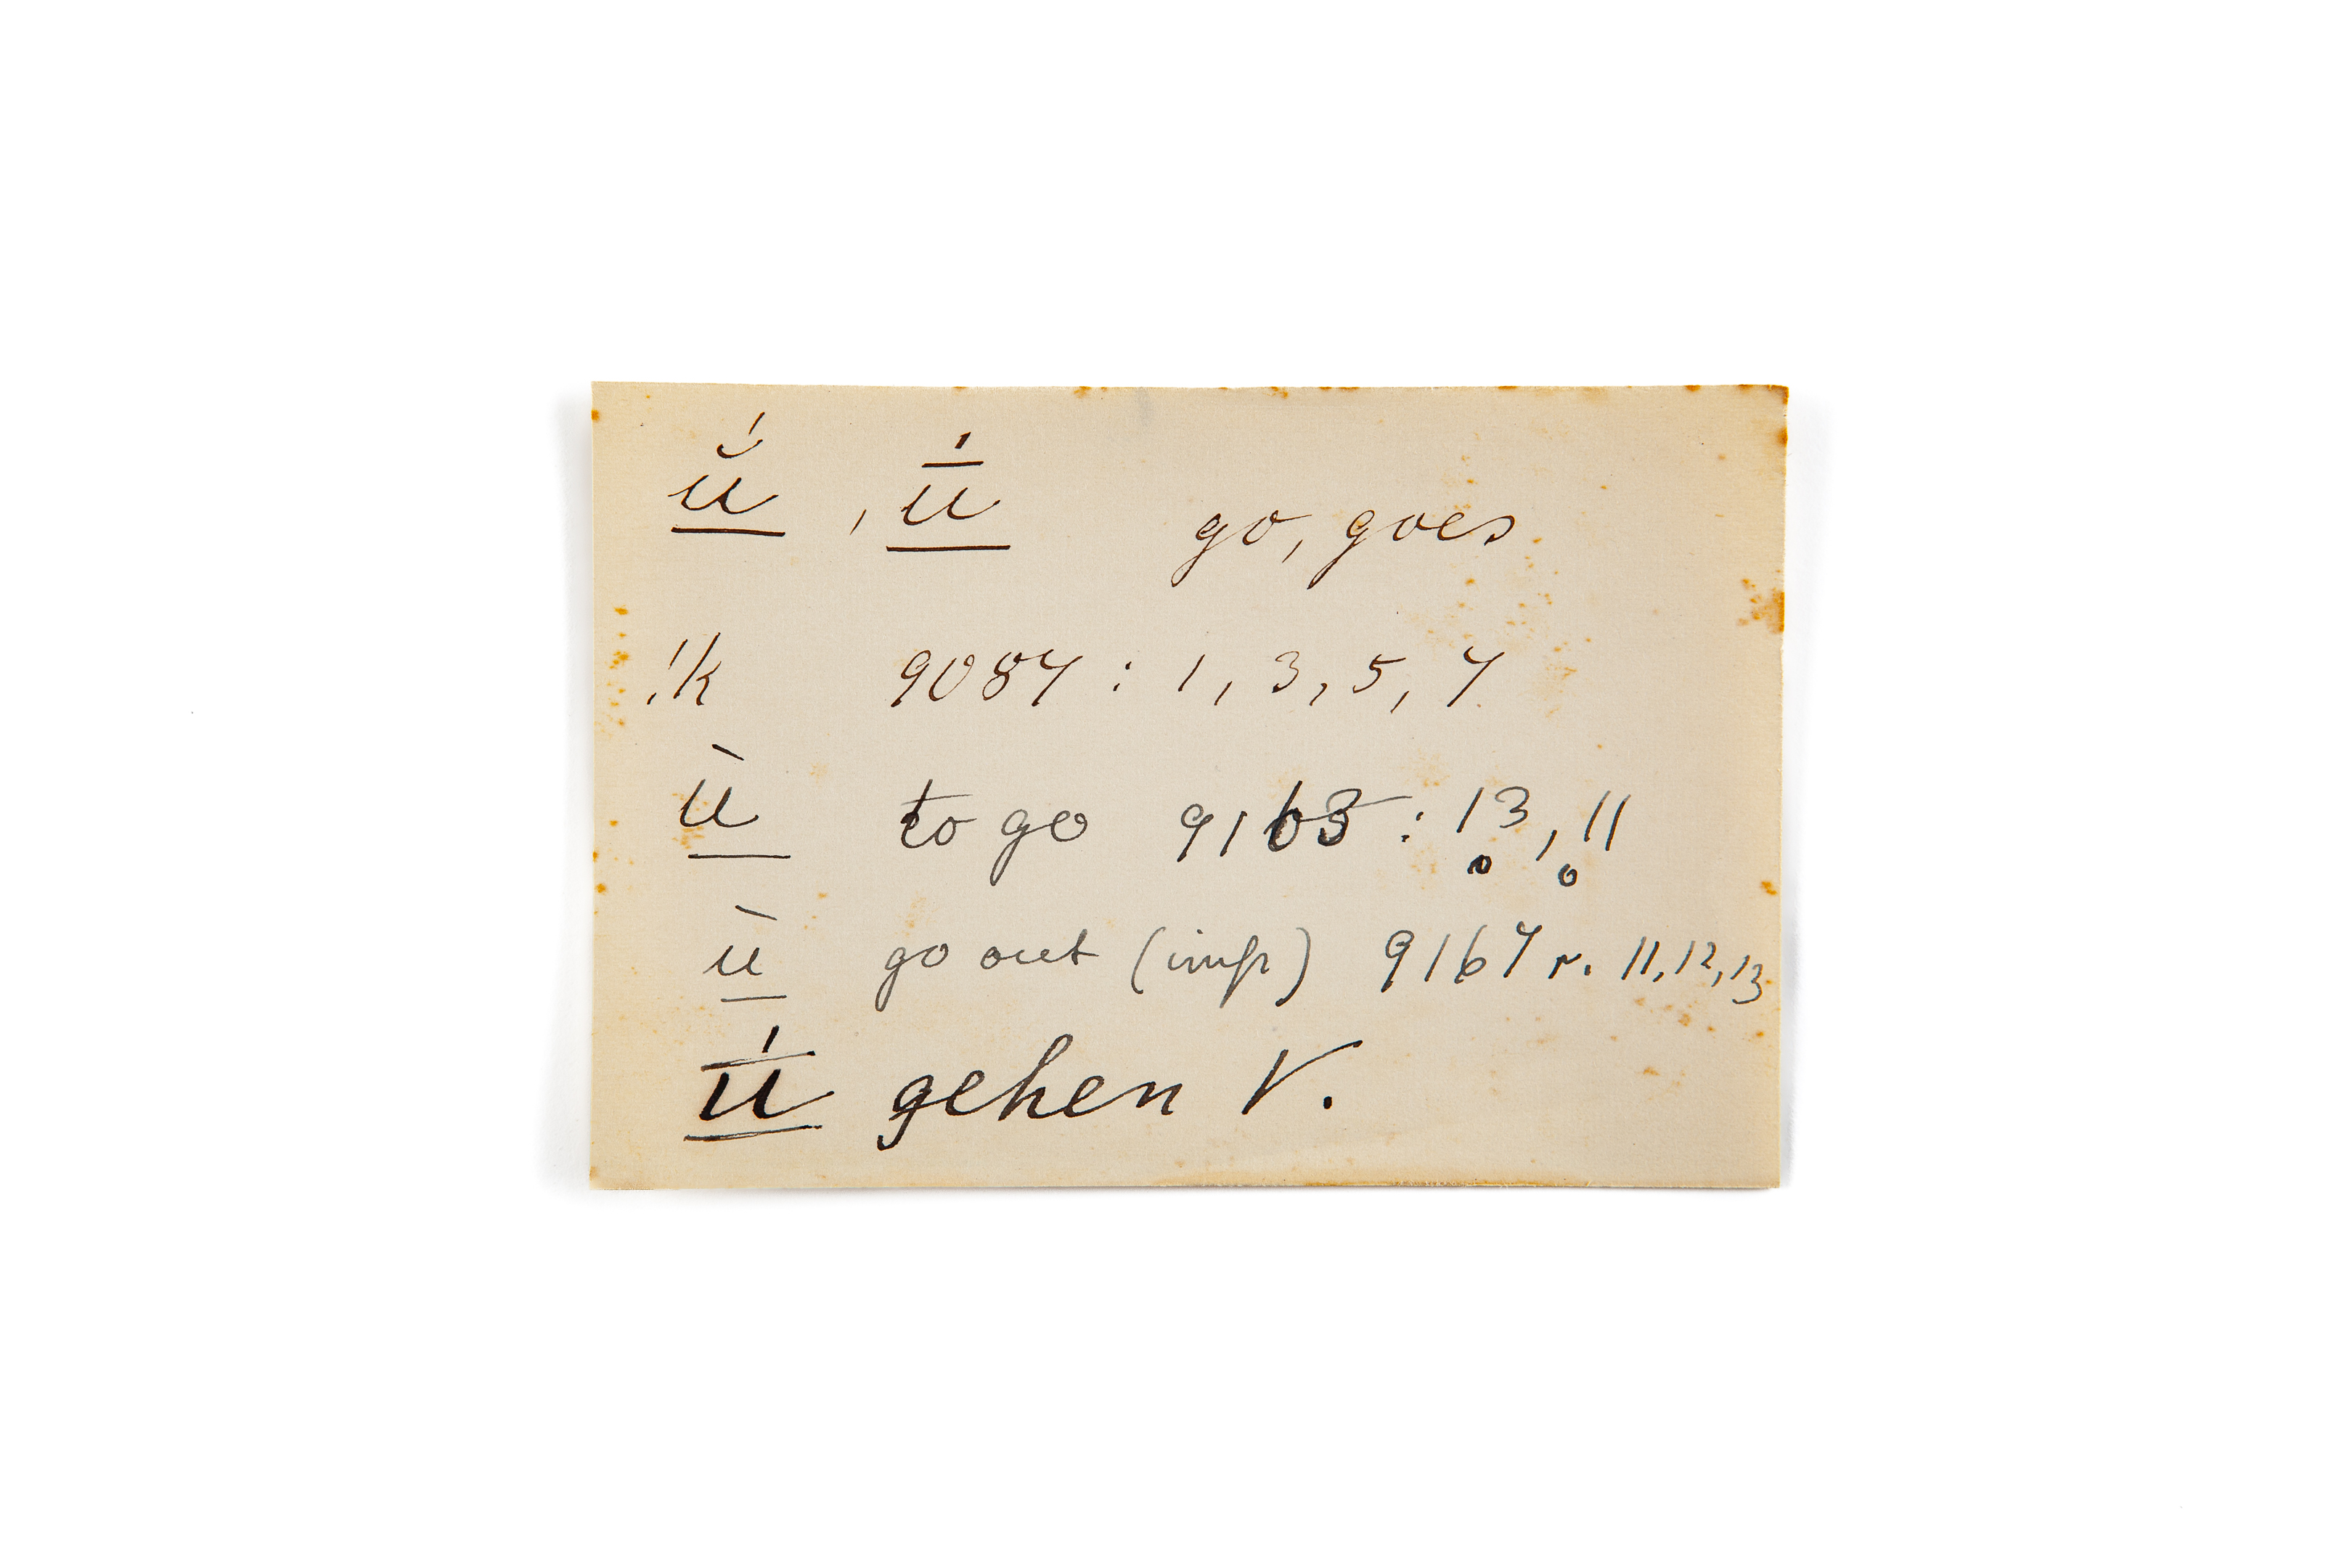 <u>ŭ́</u>, <u>ū́</u> go, goes
!k 9087 : 1, 3, 5, 7
<u>ù</u> to go : 13, 11
<u>ù</u> go out (imp) 9167 r. 11, 12, 13
<u>ū́</u> gehen V.